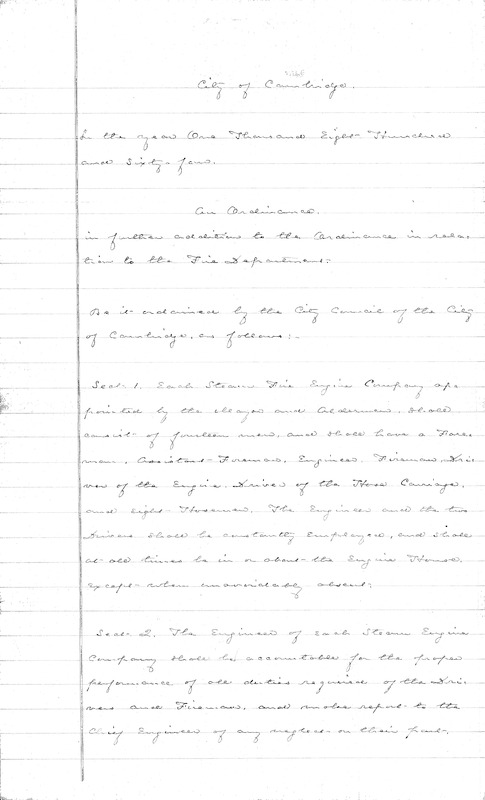 City of Cambridge.
In the year One Thousand Eight Hundred
and Sixty-four.
An Ordinance.
in further addition to the Ordinance in rela-
tion to the Fire Department:
Be it ordained by the City Council of the City
of Cambridge, as follows:-
Sect. 1. Each Steam Fire Engine Company ap-
pointed by the Mayor and Aldermen, shall
consist of fourteen men, and shall have a Fore-
man, Assistant Foreman, Engineer, Fireman, Dri-
ver of the Engine, Driver of the Hose Carriage,
and eight Hosemen. The Engineer and the two
drivers shall be constantly employed, and shall
at all times be in or about the Engine House,
except when unavoidably absent:
Sect. 2. The Engineer of each Steam Engine
Company shall be accountable for the proper
performance of all duties required of the Dri-
vers and Fireman, and make report to the
Chief Engineer of any neglect on their part.